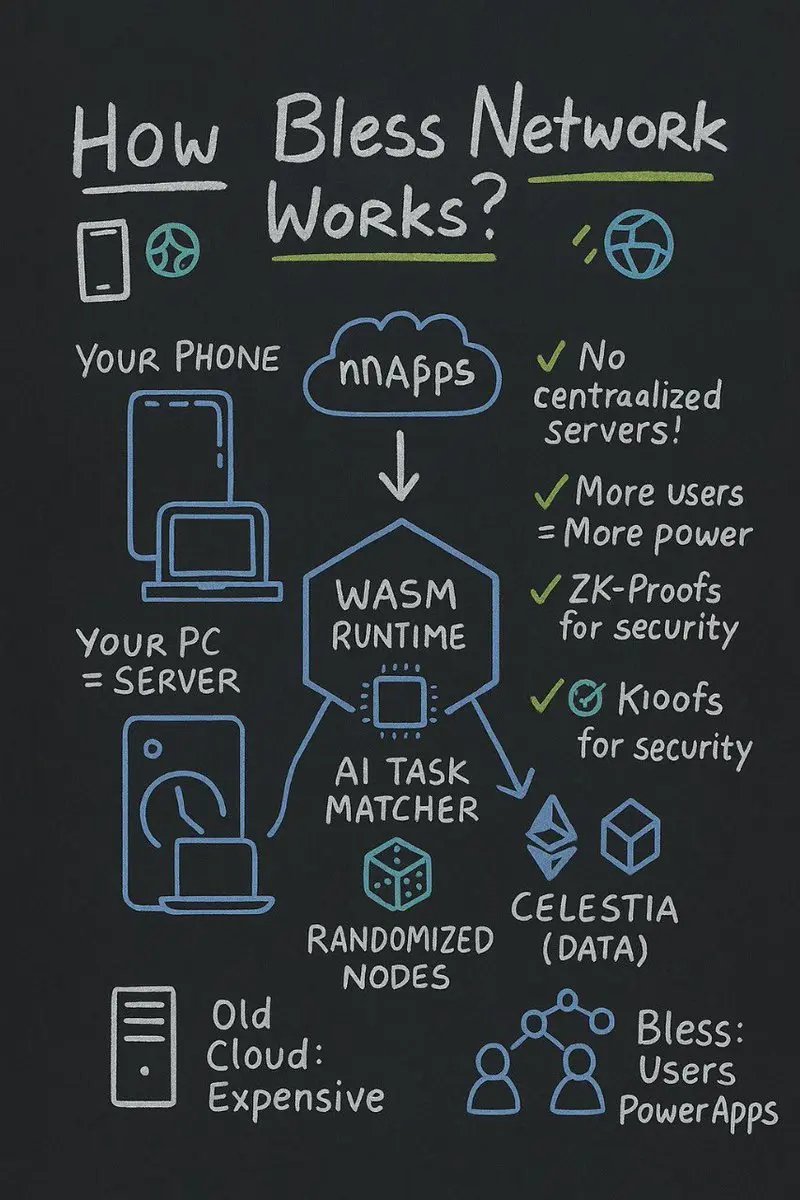 How Bless Network
Works?
YOUR PHONE
nnApps
✓ No
centraalized
servers!
✓ More users
= More power
WASM
RUNTIME
✓ ZK-Proofs
for security
YOUR PC
= SERVER
✓ Kıoofs
for security
AI TASK
MATCHER
RANDOMIZED
NODES
CELESTIA
(DATA)
Old
Cloud:
Expensive
Bless:
Users
PowerApps